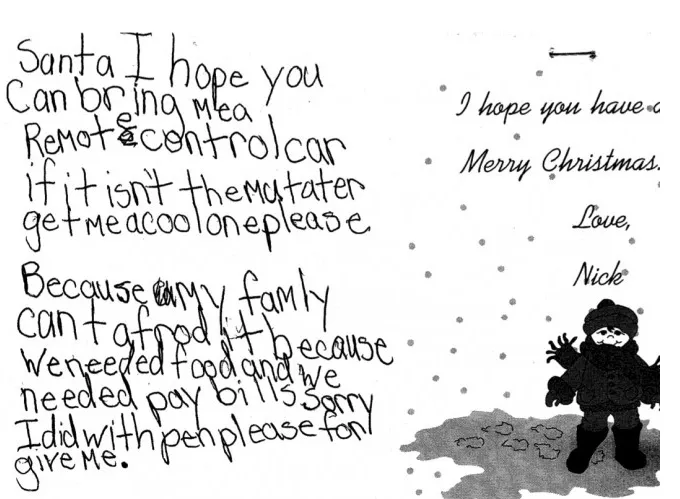 Santa I hope you
Can bring me a
Remote control car
if it isn't the matater
get me a cool one please
Because my famly
can't afrod it because
We needed food and we
needed pay bills sorry
I did with pen please for
give me.
I hope you have a
Merry Christmas.
Love,
Nick